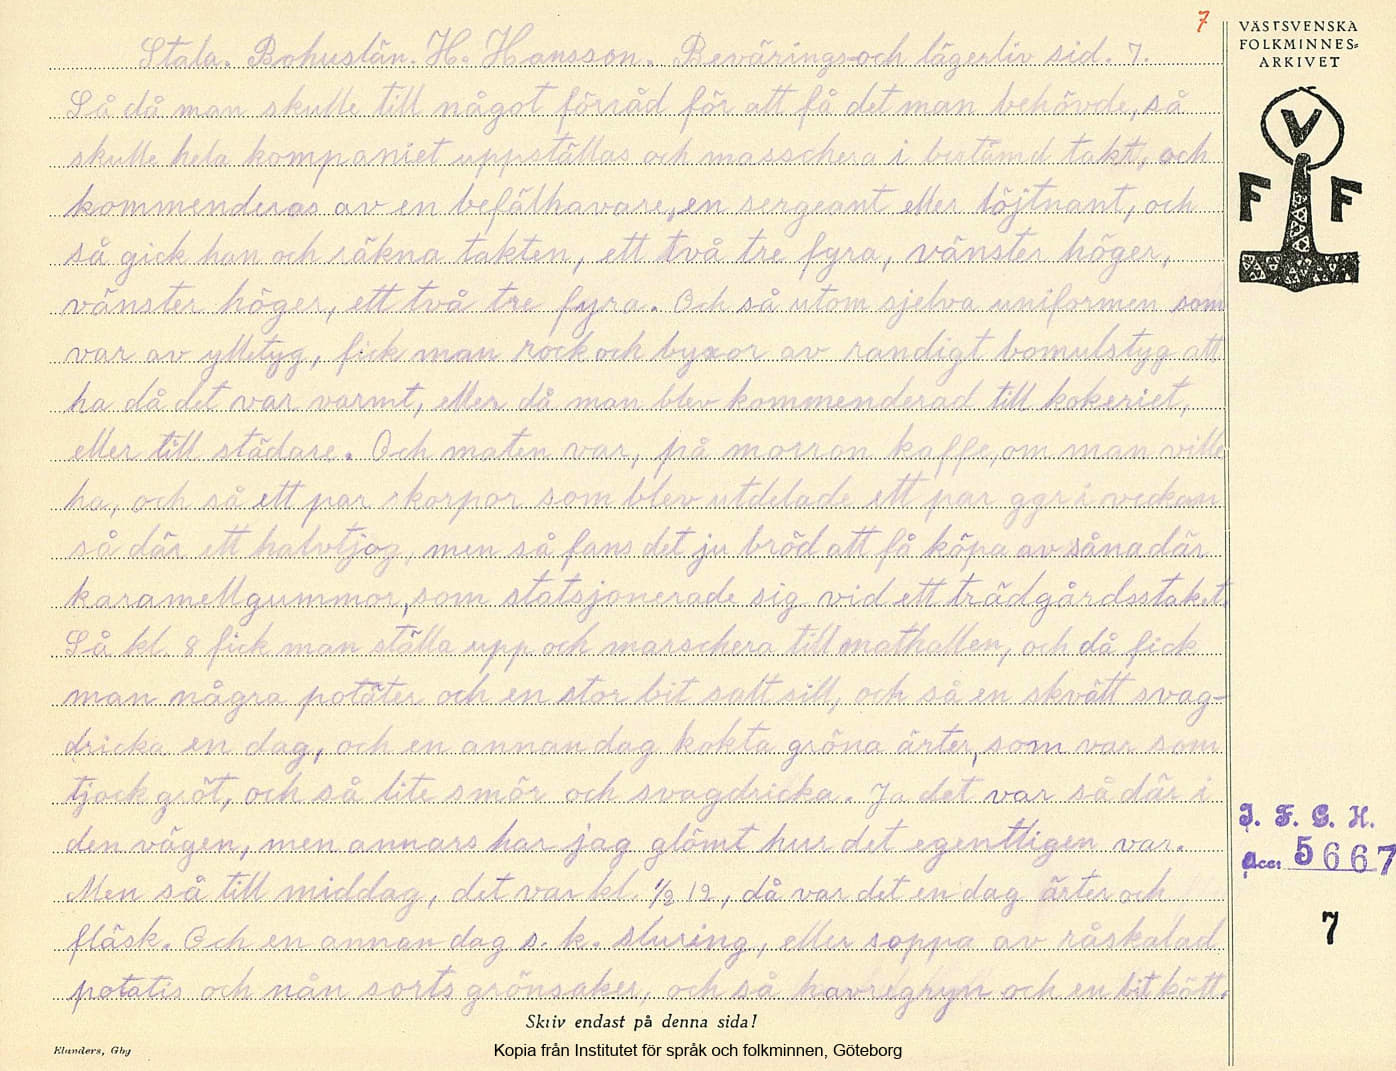 7
VÄSTSVENSKA
FOLKMINNES=
ARKIVET
V
F F
Stala. Bohuslän. H. Hansson. Beväringsoch lägerliv sid. 7.
Så då man skulle till något förråd för att få det man behövde, så
skulle hela kompaniet uppställas och masschera i bestämd takt, och
kommenderas av en befälhavare, en sergeant eller löjtnant, och
så gick han och räkna takten, ett två tre fyra, vänster höger,
vänster höger, ett två tre fyra. Och så utom sjelva uniformen som
var av ylletyg, fick man rock och byxor av randigt bomulstyg att
ha då det var varmt, eller då man blev kommenderad till kokeriet,
eller till städare. Och maten var, på morron kaffe, om man ville
ha, och så ett par skorpor som blev utdelade ett par ggr i veckan
så där ett halvtjog, men så fans det ju bröd att få köpa av såna där
karamellgummor, som statsjonerade sig vid ett trädgårdsstaket.
Så kl. 8 fick man ställa upp och marschera till mathallen, och då fick
man några potäter och en stor bit salt sill, och så en skvätt svag-
dricka en dag, och en annan dag kokta gröna ärter, som var som
tjock gröt, och så lite smör och svagdricka. Ja det var så där i
den vägen, men annars har jag glömt hur det egentligen var.
Men så till middag, det var kl. 1/2 12, då var det en dag ärter och
fläsk. Och en annan dag s. k. sluring, eller soppa av råskalad
potatis och nån sorts grönsaker, och så havregryn och en bit kött.
Skriv endast på denna sida!
Elanders, Gbg
Kopia från Institutet för språk och folkminnen, Göteborg
I. F. G. H.
Acc: 5667
7